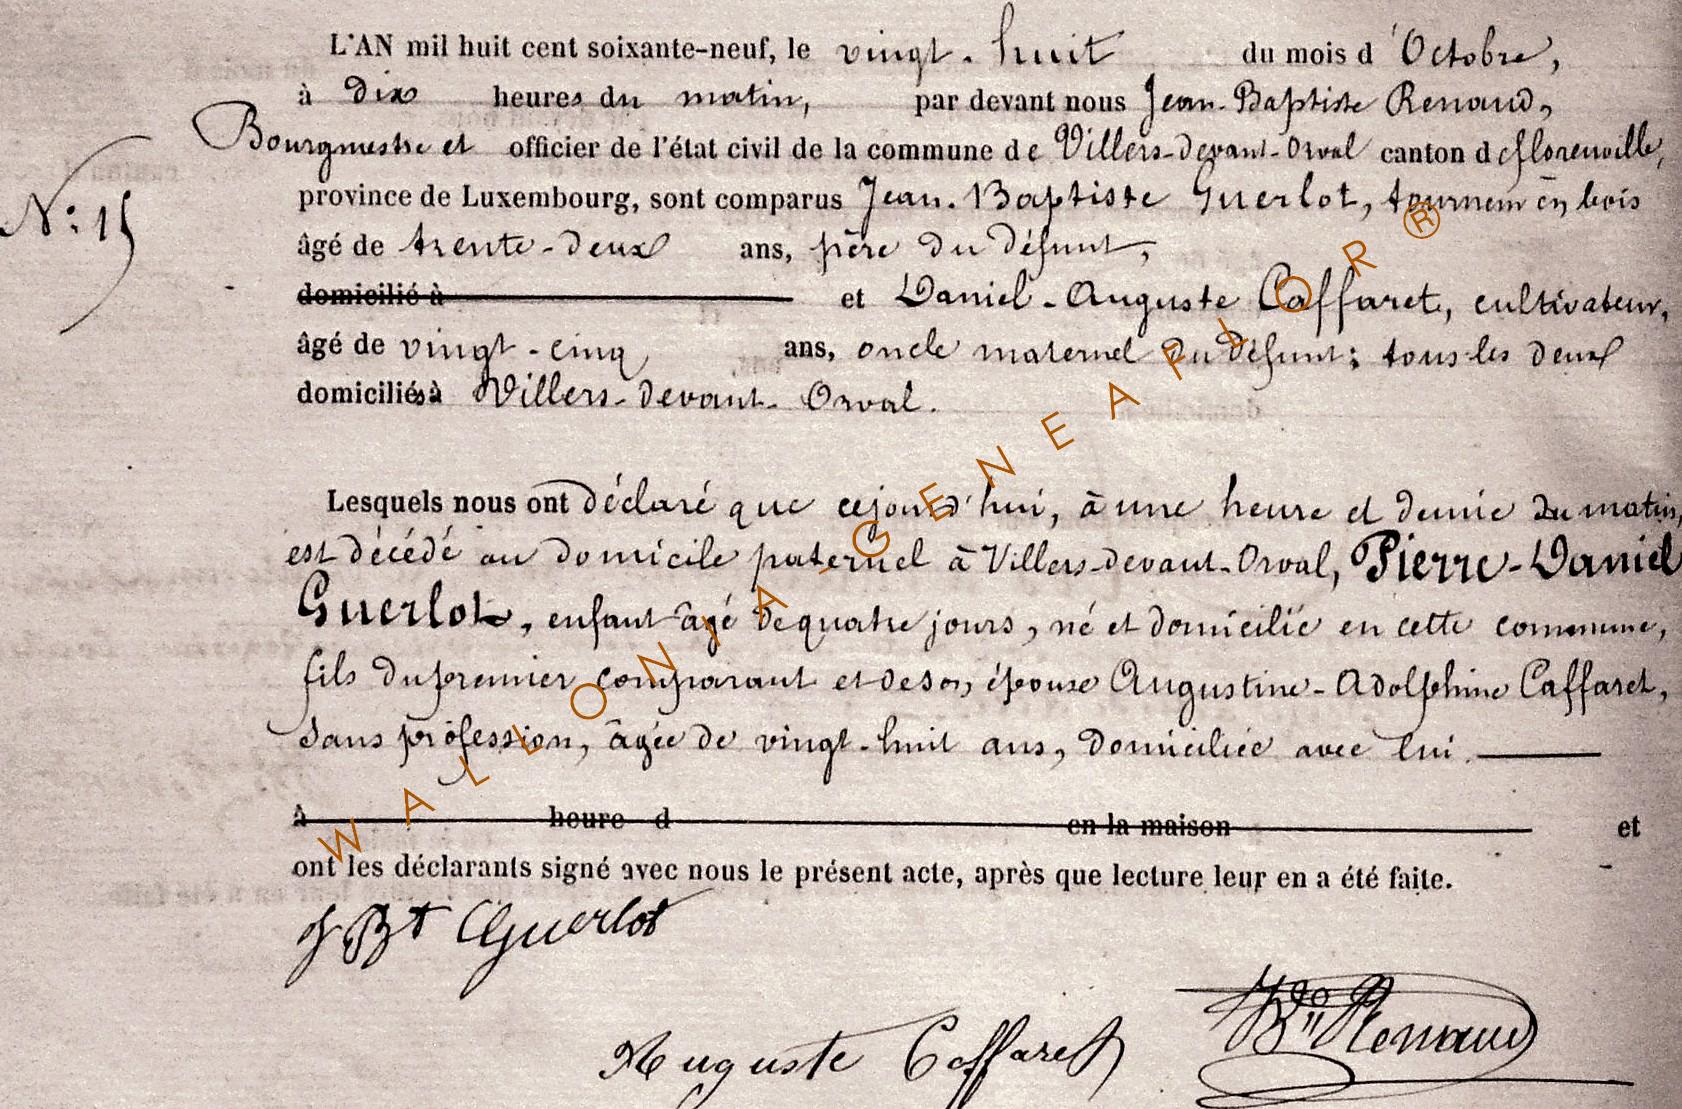 L'AN mil huit cent soixante-neuf, le vingt-huit du mois d'Octobre,
à dix heures du matin, par devant nous Jean-Baptiste Renaud,
Bourgmestre et officier de l'état civil de la commune de Villers-devant-Orval canton de florenville,
N° 15
province de Luxembourg, sont comparus Jean-Baptiste Guerlot, tourneur en bois
âgé de trente-deux ans, père du défunt,
domicilié à et Daniel-Auguste Caffaret, cultivateur,
âgé de vingt-cinq ans, oncle maternel du défunt; tous les deux
domiciliés à Villers-devant-Orval.
Lesquels nous ont déclaré que cejourd'hui, à une heure et demie du matin,
est décédé au domicile paternel à Villers-devant-Orval, Pierre-Daniel
Guerlot, enfant âgé de quatre jours, né et domicilié en cette commune,
fils du premier comparant et de son épouse Augustine-Adolphine Caffaret,
sans profession, âgée de vingt-huit ans, domiciliée avec lui.
à heure d en la maison et
ont les déclarants signé avec nous le présent acte, après que lecture leur en a été faite.
J Bt Guerlot
Auguste Caffaret
Renaud
WALLONIA-GENEAFLOR®